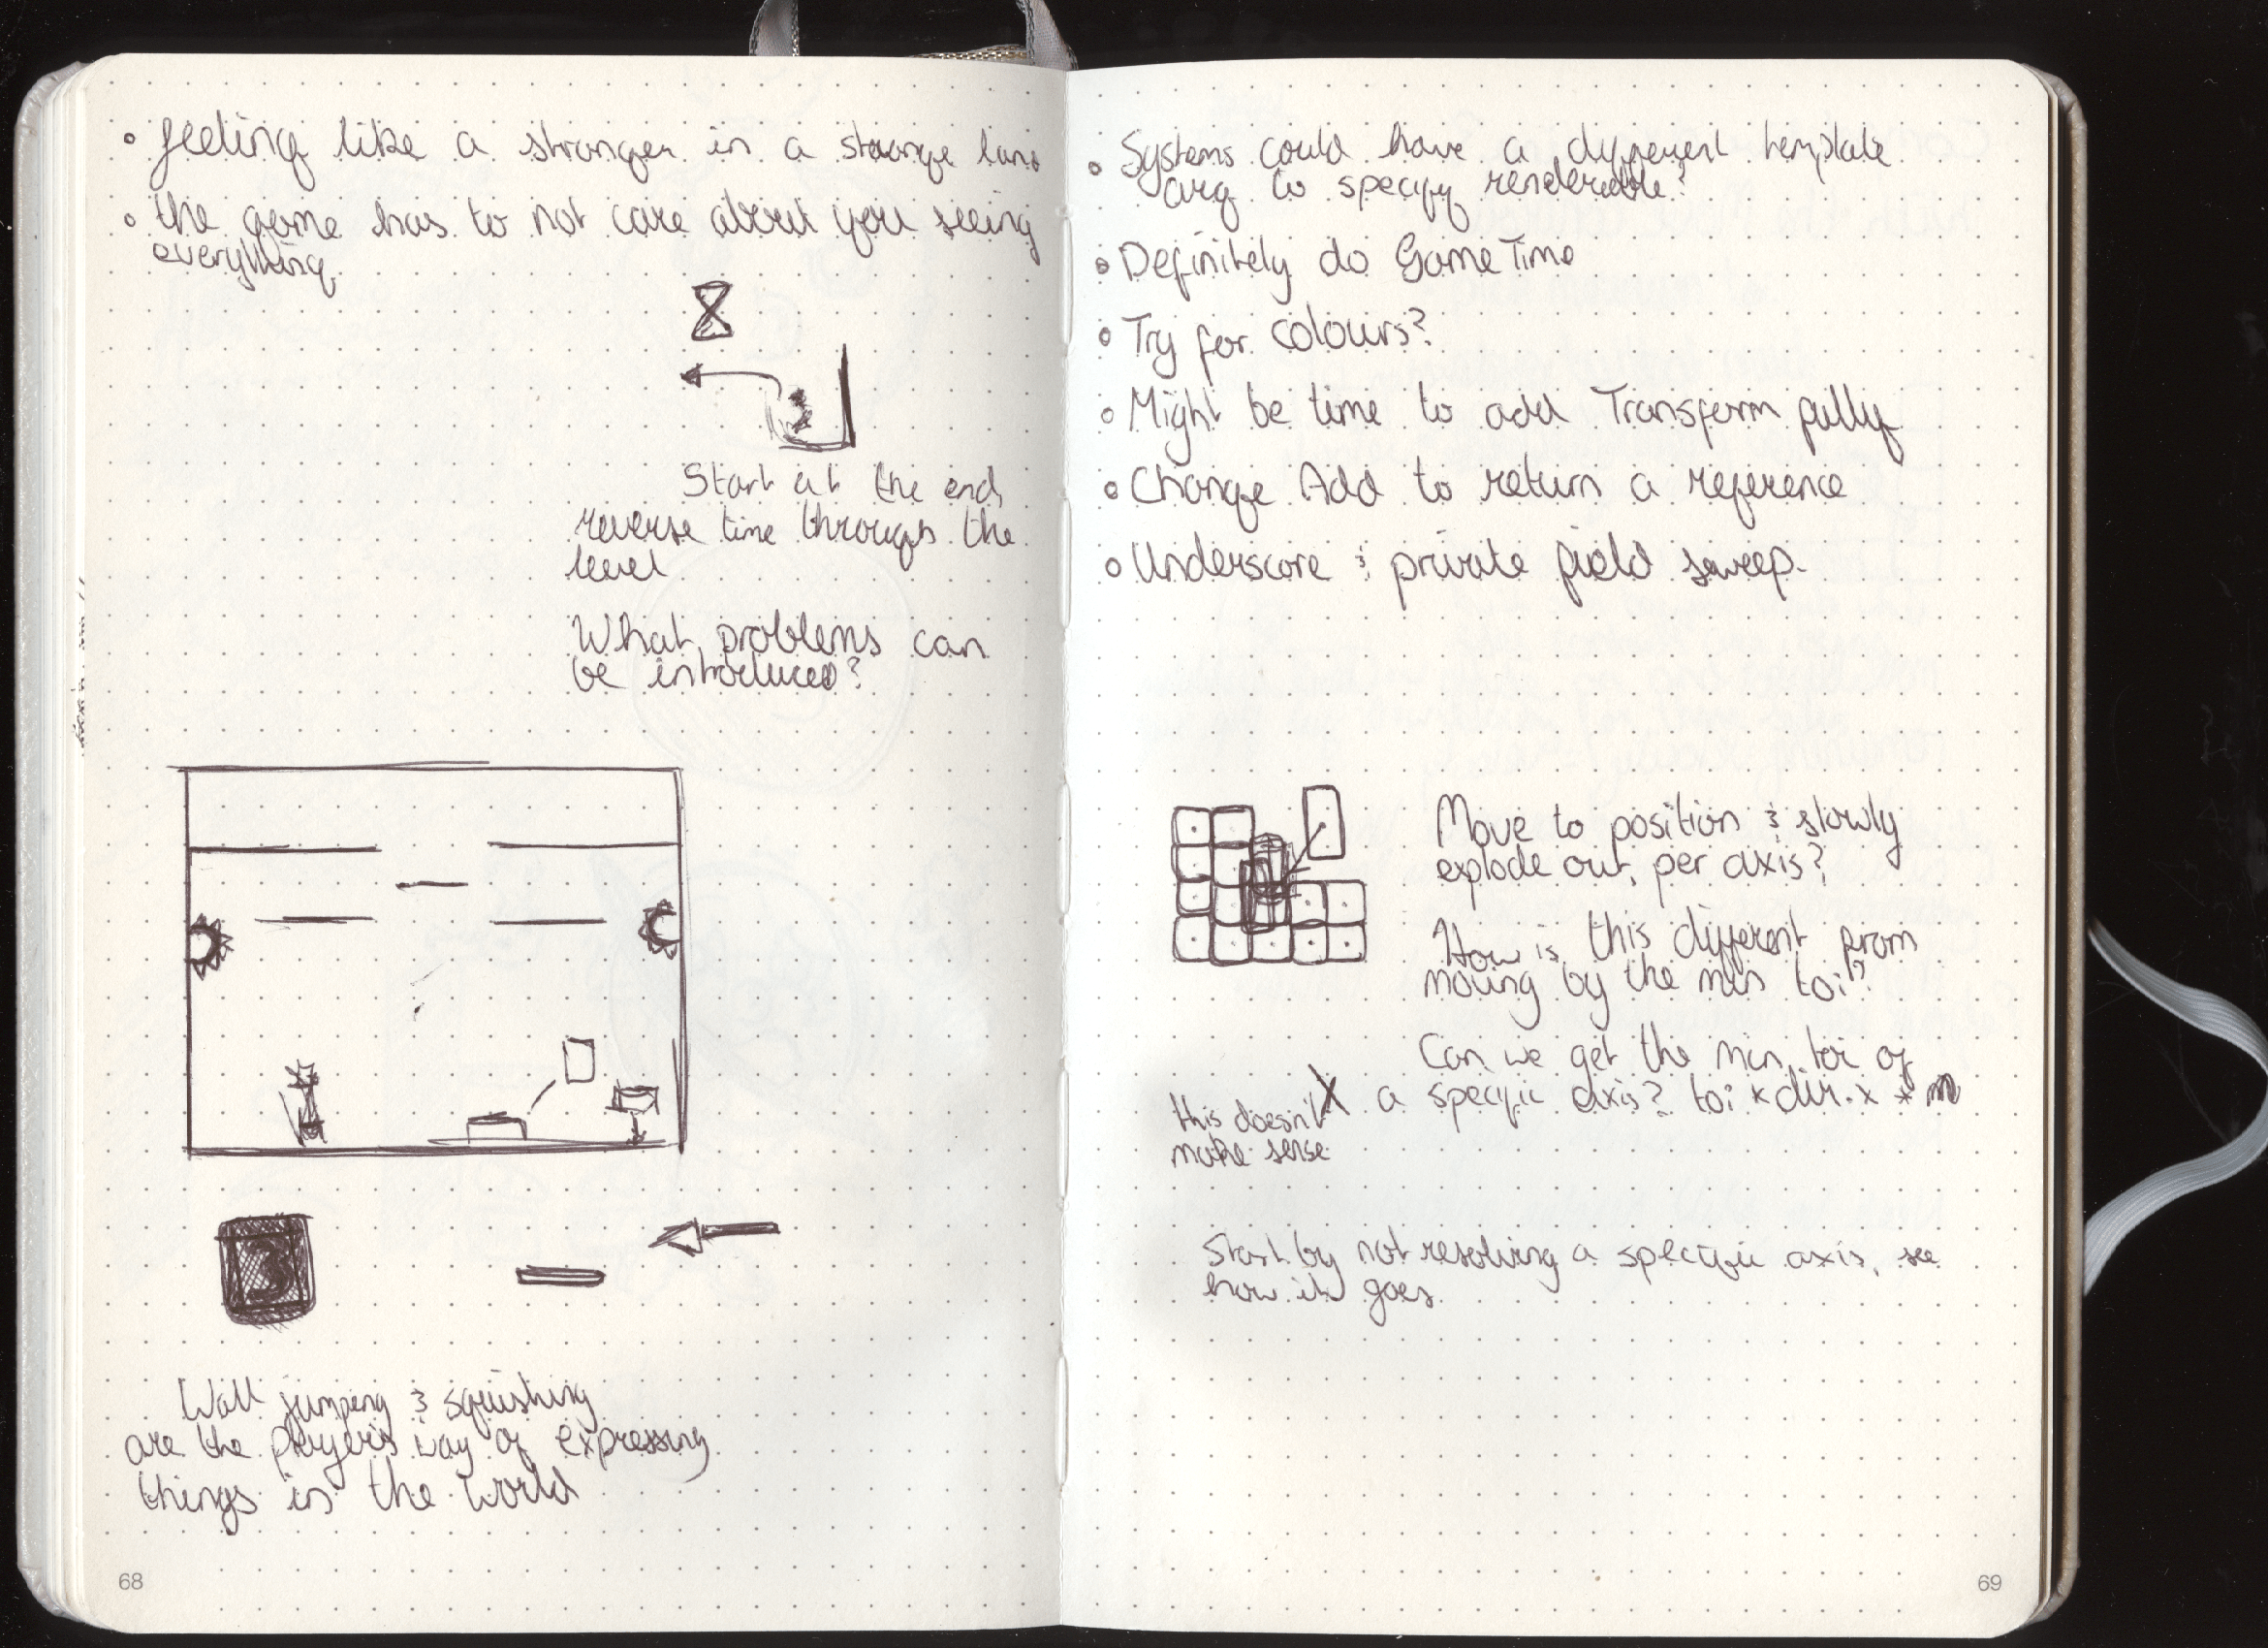 feeling like a stranger in a strange land
the game has to not care about you seeing
everything
Start at the end,
reverse time through the
level
What problems can
be introduced?
Wall jumping & squishing
are the player's way of expressing
things in the world
68
Systems could have a different template
arg to specify renderable?
Definitely do GameTime
Try for colours?
Might be time to add Transform fully
Change Add to return a reference
Underscore & private field sweep.
Move to position & slowly
explode out, per axis?
How is this different from
moving by the min toi?
Can we get the min toi of
a specific axis? toi * dir.x *
this doesn't
make sense
Start by not resolving a specific axis, see
how it goes
69